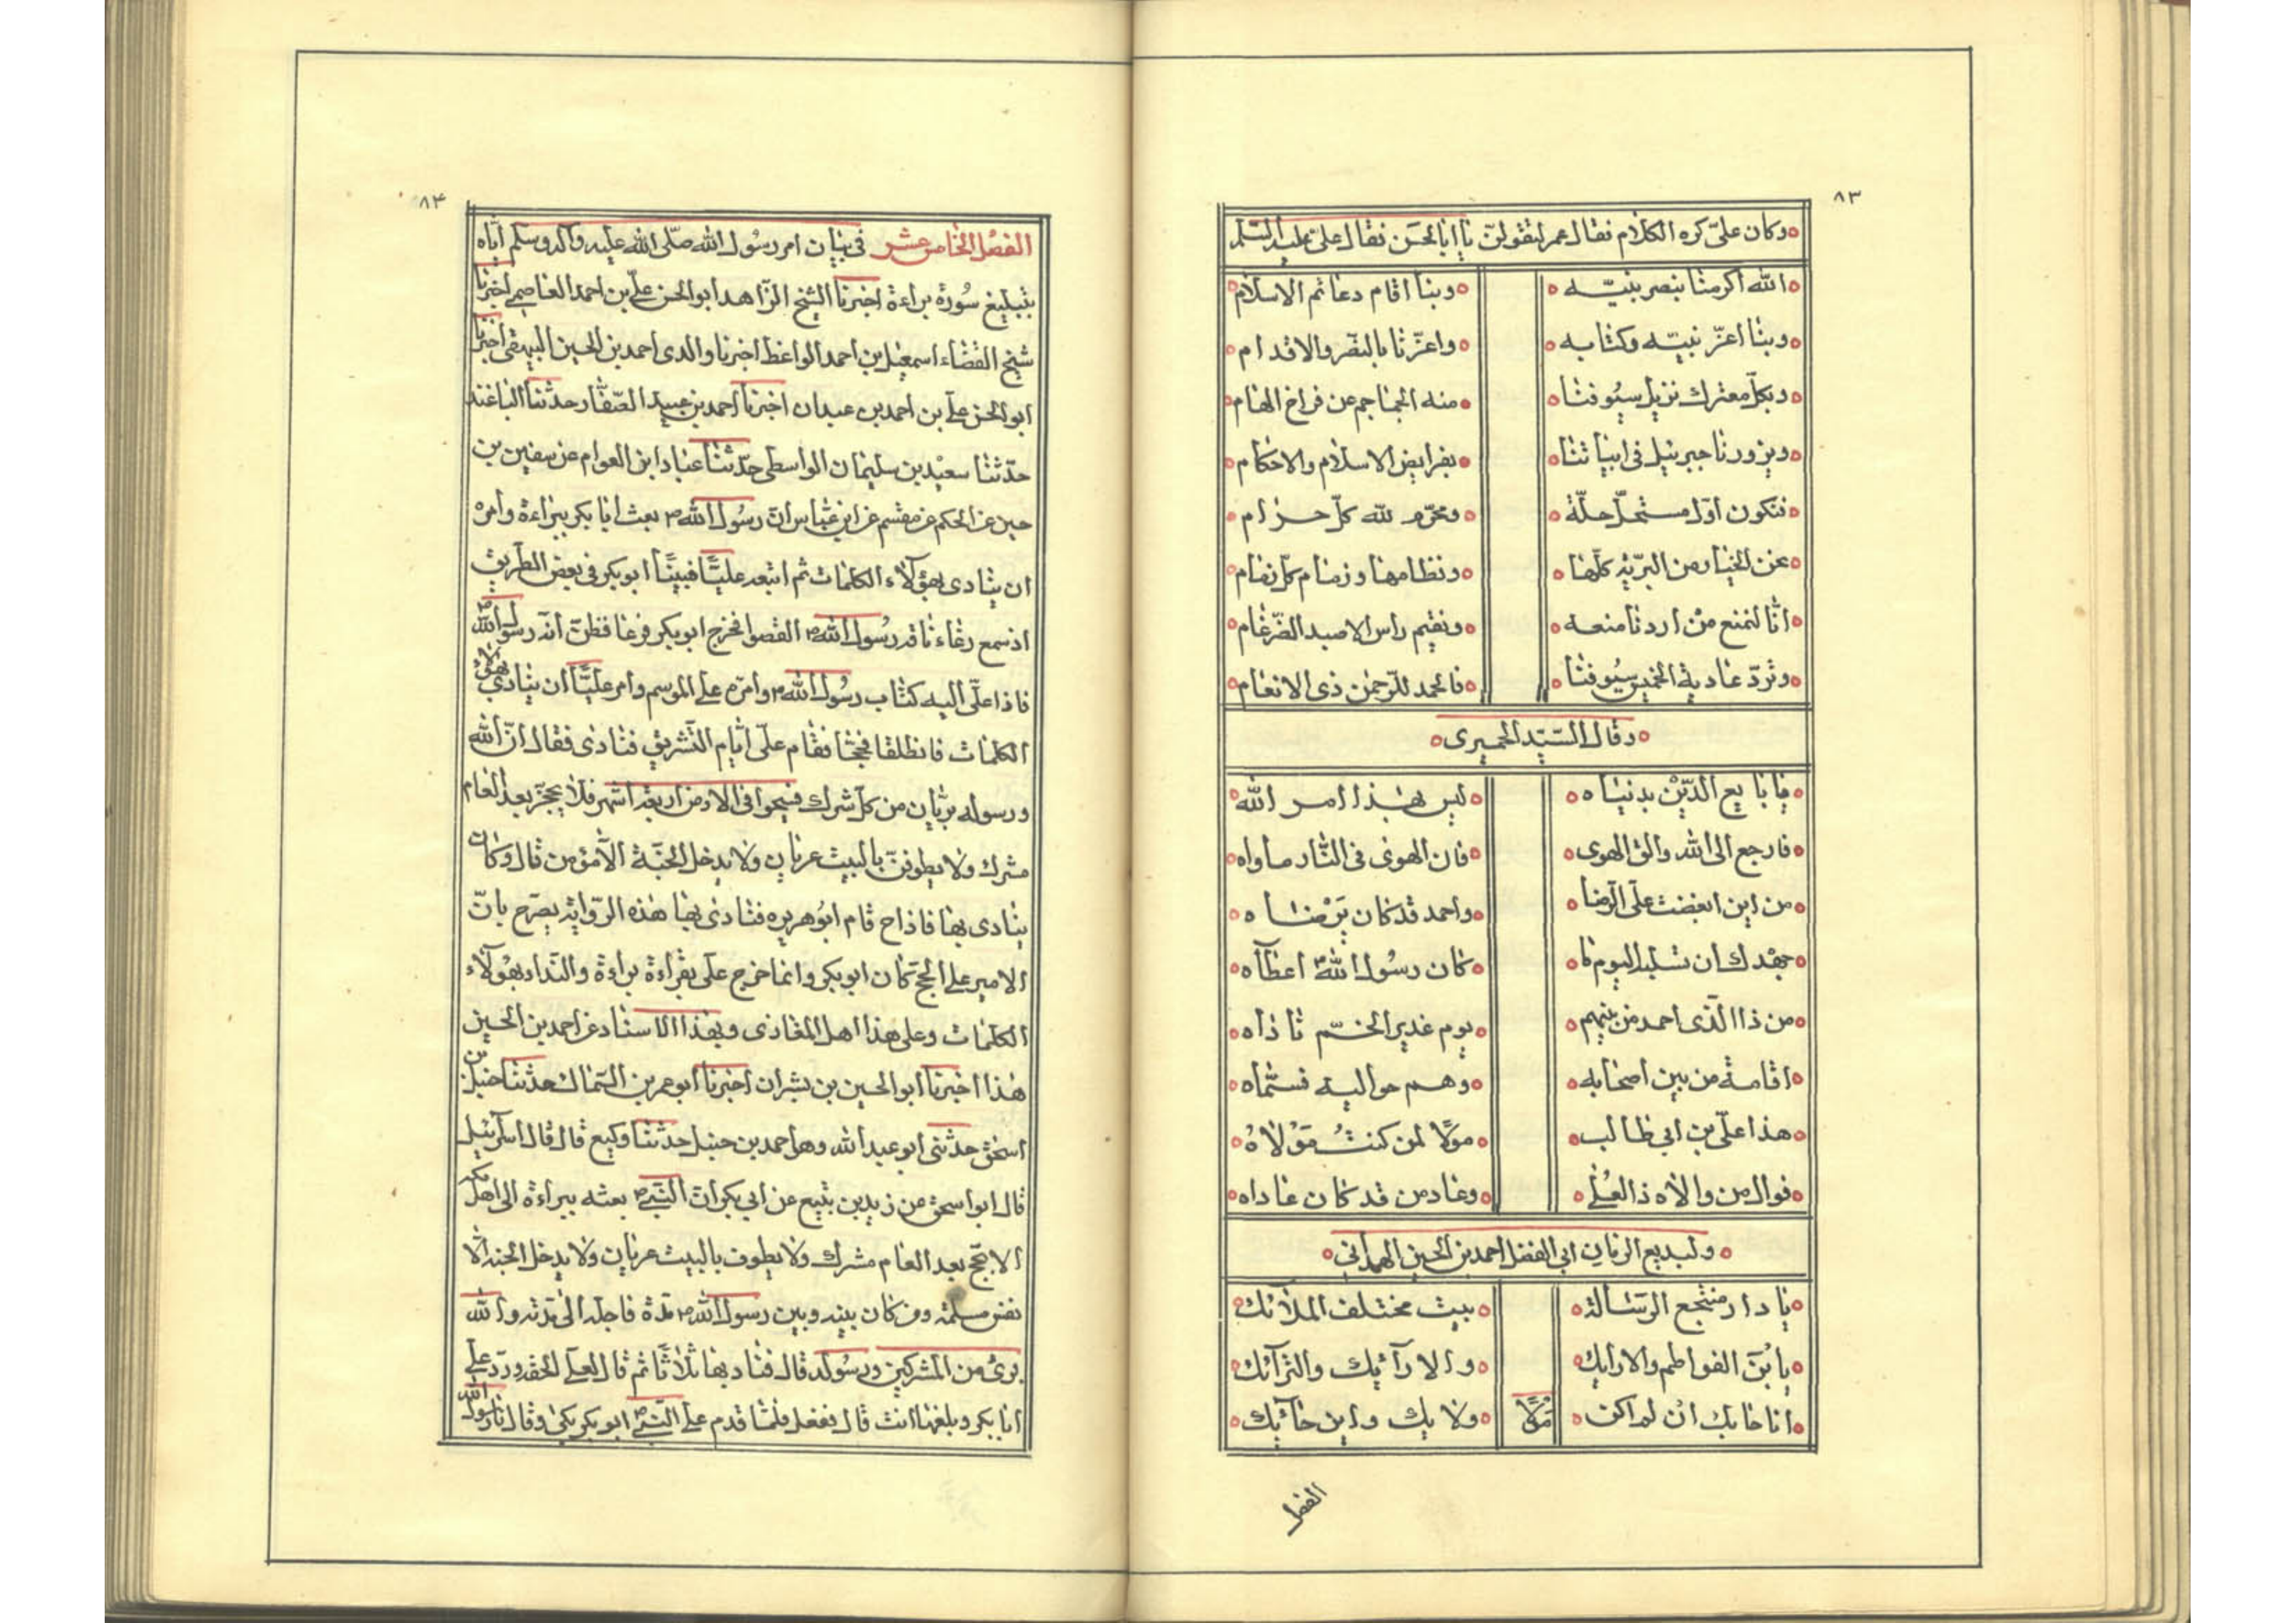 ٨٣
وكان علىّ كره الكلام فقال عمر لتقولنّ يا ابا الحسن فقال علىّ عليه السّلم
الله اكرمنا بنصر نبيّه وبنا اقام دعائم الاسلام
وبنا اعزّ نبيّه وكتابه واعزّنا بالنّصر والاقدام
وبكلّ معترك تزيل سيُوفنا منه الجماجم عن فراخ الهام
ويزورنا جبرئيل فى ابياتنا بفرايض الاسلام والاحكام
فنكون اوّل مستحلّ حلّه ومحرّم لله كلّ حرام
نحن الخيار من البريّة كلّها ونظامها وزمام كلّ زمام
انّا لنمنع من اردنا منعه ونقيم راس الاصيد الضّرغام
وتردّ عادية الخميس سيُوفنا فالحمد للرّحمٰن ذى الانعام
وقال السّيّد الحميرى
يا بايع الدّين بدنياه ليس بهذا امر الله
فارجع الى الله والق الهوى فان الهوى فى النّار ماواه
من اين ابغضت علىّ الرّضا واحمد قد كان يَرْضاه
جهدك ان تسلبه اليوم ما كان رسُول الله اعطاه
من ذا الّذى احمد من بينهم يوم غدير الخمّ ناداه
اقامه من بين اصحابه وهم حواليه فسمّاه
هذا علىّ بن ابى طالب مولًا لمن كنتُ مَوْلاهُ
فوال من والاه ذا العُلى وعاد من قد كان عاداه
ولبديع الزمان ابى الفضل احمد بن الحسين الهمدانى
يا دار منتجع الرسالة بيت مختلف الملائك
يا بْن الفواطم والاراىك والارآئيك والترآئك
انا حائك ان لم اكن مَولًا ولايك وابن حآئيك
الفصل
٨٤
الفصل الخامس عشر فى بيان امر رسُول الله صلّى الله عليه وآله وسلم ايّاه
بتبليغ سُورة براءة اخبرنا الشيخ الزّاهد ابو الحسن علىّ بن احمد العاصمى اخبرنا
شيخ القضاء اسمعيل بن احمد الواعظ اخبرنا والدى احمد بن الحسين البيهقى اخبرنا
ابو الحسن على بن احمد بن عبدان اخبرنا احمد بن عبيد الصّفّار حدّثنا الباغند
حدّثنا سعيد بن سليمان الواسطى حدّثنا عباد ابن العوام عن سفين بن
حسين عن الحكم عن مقسم عن ابن عبّاس انّ رسُول الله ص بعث ابا بكر ببراءة وامره
ان ينادى بهؤلاء الكلمات ثم اتبعه عليّاً فبينَا ابو بكر فى بعض الطريق
اذ سمع رغاء ناقة رسُول الله ص القصوا فخرج ابو بكر فزعا فظنّ انّه رسول الله
فاذا علىّ اليه كتاب رسُول الله ص وامرّه على الموسم وامر عليّاً ان ينادى بهؤلاء
الكلمات فانطلقا فحجّا فقام علىّ ايّام التّشريق فنادى فقال انّ الله
ورسوله بريان من كلّ شرك فسيحوا فى الارض اربعة اشهر فلا يحجّ بعد العام
مشرك ولا يطوفنّ بالبيت عريان ولا يدخل الجنّة الّا مؤمن قال وكان
ينادى بها فاذا ح قام ابُو هريره فنادى بها هذه الرّواية يصرّح بانّ
الامير على الحجّ كان ابو بكر وانما خرج على بقراءة براءة والنّداء بهؤلاء
الكلمات وعلى هذا اهل المغازى وبهذا الاسناد عن احمد بن الحسين
هٰذا اخبرنا ابو الحسين بن بشران اخبرنا ابو عمر بن السّمّاك حدّثنا حنبل بن
اسحٰق حدثنى ابو عبد الله وهو احمد بن حنبل حدّثنا وكيع قال قال اسرئيل
قال ابو اسحٰق من زيد بن يثيع عن ابى بكر انّ النّبىّ ص بعثه ببراءة الى اهل مكه
الا يحجّ بعد العام مشرك ولا يطوف بالبيت عريان ولا يدخل الجنه الّا
نفس مسلمة ومن كان بينه وبين رسول الله ص مدّة فاجله الى مدّته والله
برئ من المشركين ورسُوله قال فناد بها ثلاثًا ثم قال لعلى الحقه وردّ علىّ
ابا بكر وبلغها انت قال ففعل فلمّا قدم على النّبىّ ص ابو بكر بكى وقال يا رسُول الله